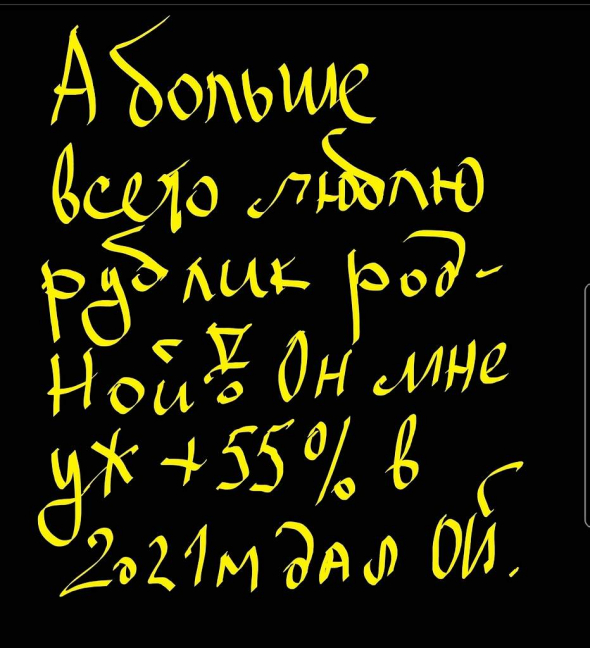 А больше
всего люблю
рублик род-
ной! Он мне
уж +55% в
2021м дал ОЙ.